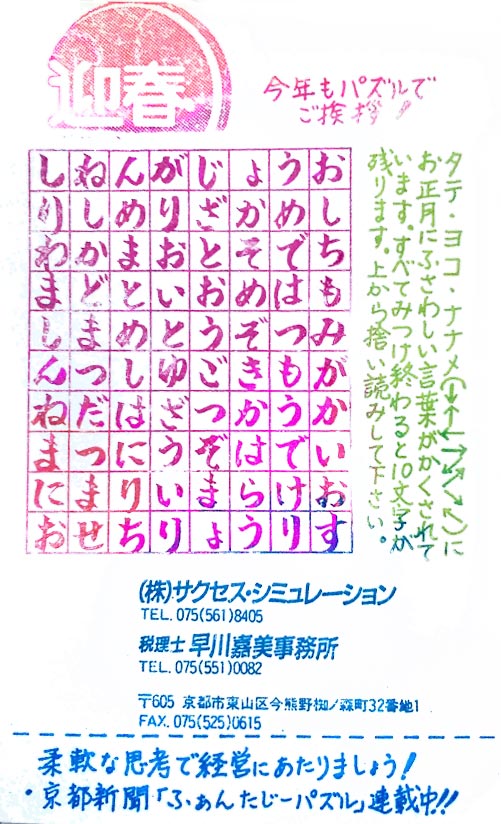 迎春
今年もパズルで
ご挨拶！
タテ・ヨコ・ナナメ(↓↑←→↗↙↘↖)に
お正月にふさわしい言葉がかくされて
います。すべてみつけ終わると10文字が
残ります。上から捨い読みして下さい。
しねんがじょうお
りしめりざかめし
わかまおとそでち
まどといおめはも
しまめとうぞつみ
んつしゆごきもが
ねだはざつかうか
まつにうぞはでい
にまりいまらけお
おせちりょうりす
(株)サクセス・シミュレーション
TEL. 075(561)8405
税理士 早川嘉美事務所
TEL. 075(551)0082
〒605 京都市東山区今熊野椥ノ森町32番地1
FAX. 075(525)0615
柔軟な思考で経営にあたりましょう！
・京都新聞「ふぁんたじーパズル」連載中!!